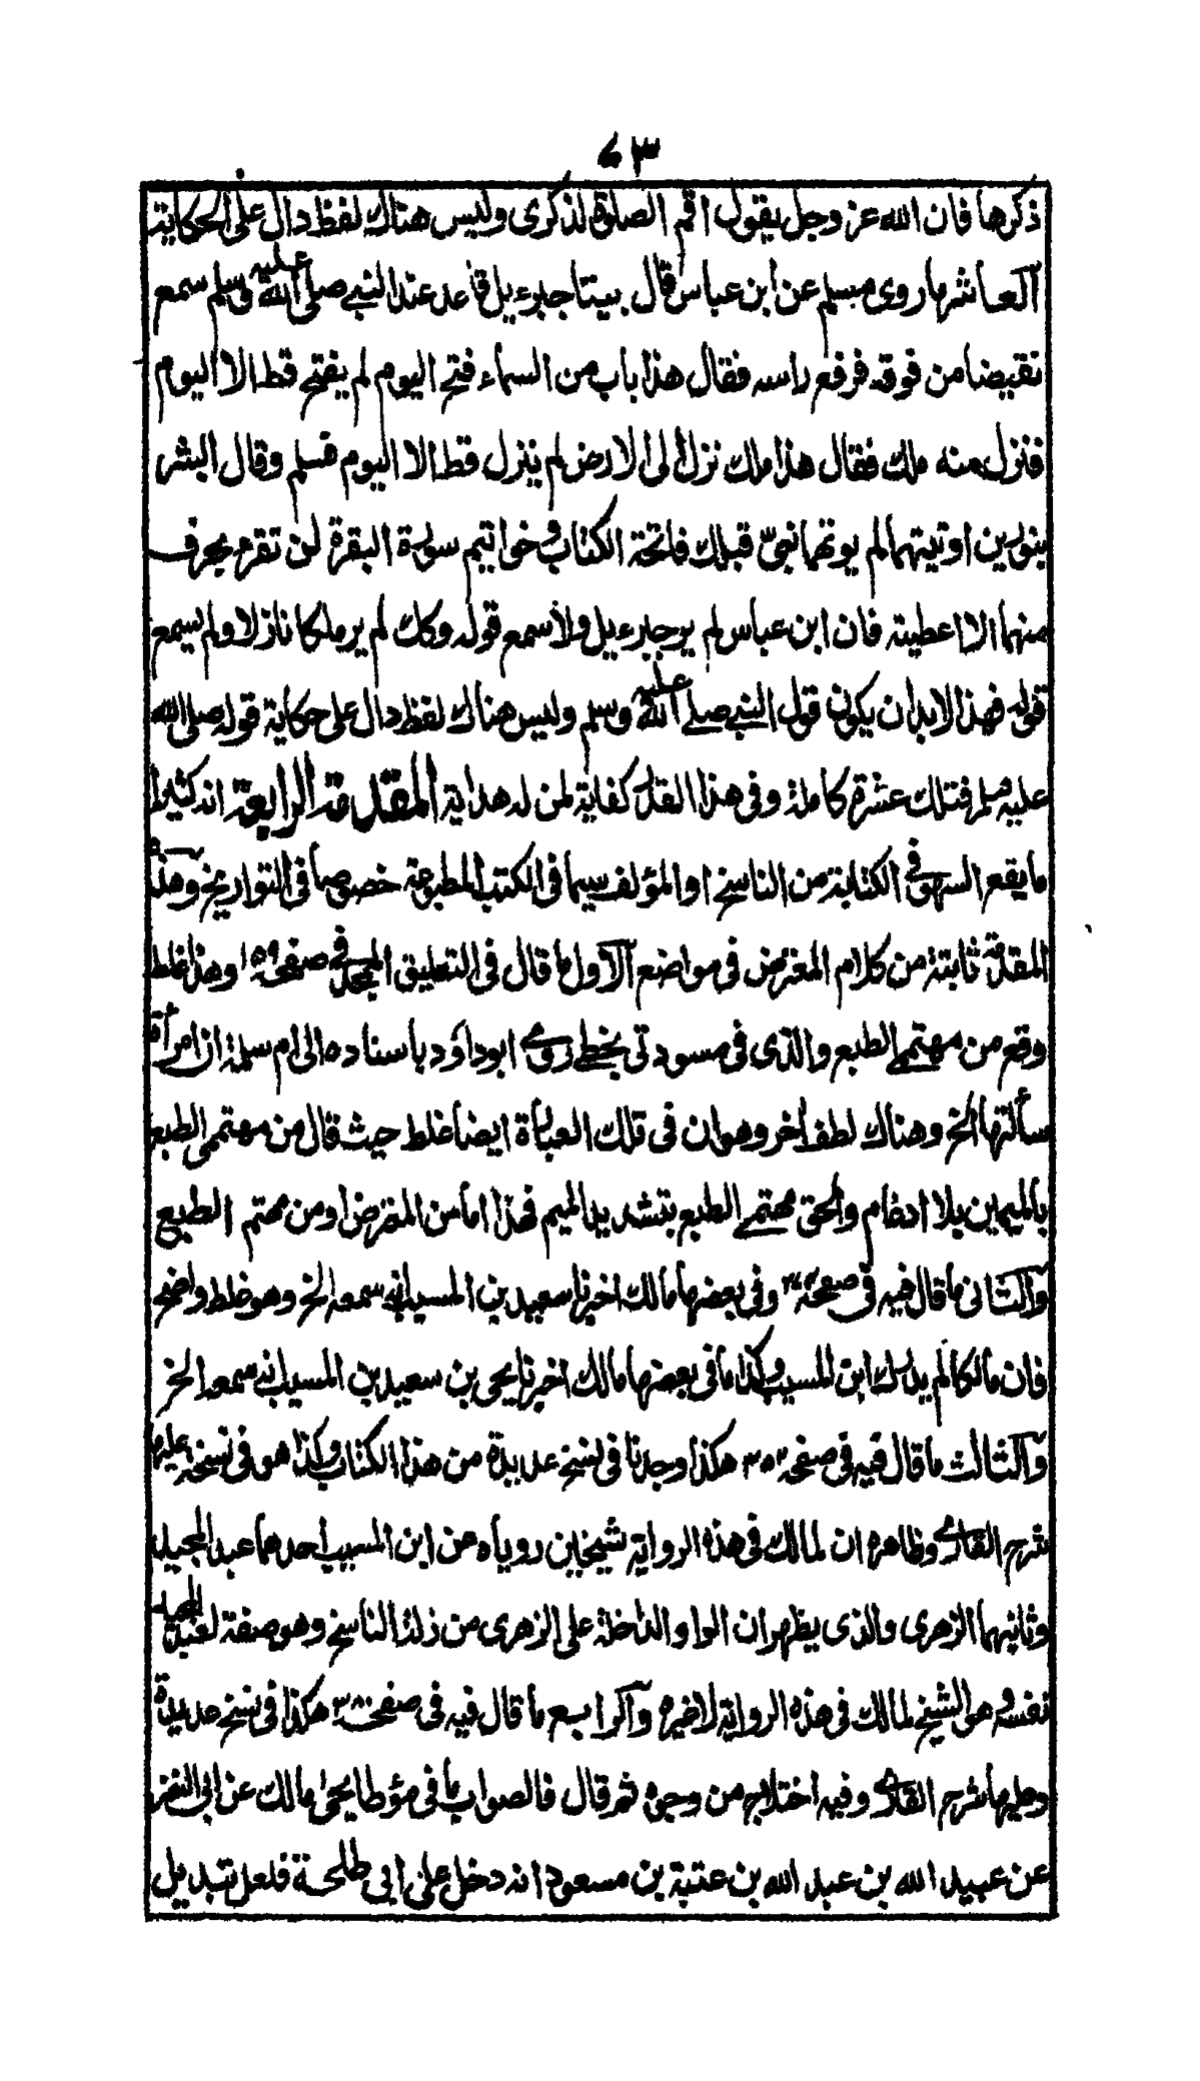 ٦٣
ذكرها فان الله عز وجل يقول اقم الصلوة لذكرى وليس هناك لفظ دال على الحكاية
العاشر ما روى مسلم عن ابن عباس قال بينا جبرءيل قاعد عند النبي صلى الله عليه وسلم سمع
نقيضا من فوقه فرفع راسه فقال هذا باب من السماء فتح اليوم لم يفتح قط الا اليوم
فنزل منه ملك فقال هذا ملك نزل الى الارض لم ينزل قط الا اليوم فسلم وقال ابشر
بنورين اوتيتهما لم يوتهما نبي قبلك فاتحة الكتاب وخواتيم سورة البقرة لن تقرء بحرف
منهما الا اعطيته فان ابن عباس لم ير جبرءيل ولا سمع قوله وكك لم ير ملكا نازلا ولم يسمع
قوله فهذا لابد ان يكون قول النبي صلى الله عليه وسلم وليس هناك لفظ دال على حكاية قوله صلى الله
عليه وسلم فتلك عشرة كاملة وفى هذا القدر كفاية لمن له هداية المقدمة الرابعة انه كثيرا
ما يقع السهو فى الكتابة من الناسخ او المؤلف سيما فى الكتب المطبوعة خصوصا فى التواريخ وهذه
المقدمة ثابتة من كلام المعترض فى مواضع الاول ما قال فى التعليق الممجد فى صفحة ١٥٩ وهذا غلط
وقع من مهتمى الطبع والذى فى مسودتى بخطى روى ابو داود باسناده الى ام سلمة ان امرأة
سألتها الخ وهناك لطف اخر وهو ان فى تلك العبارة ايضا غلط حيث قال من مهتمى الطبع
بالميمين بلا ادغام والحق مهتمى الطبع بتشديد الميم فهذا اما من المعترض او من مهتم الطبع
والثانى ما قال فيه فى صفحة وفى بعضها مالك اخبرنا سعيد بن المسيب انه سمعه الخ وهو غلط واضح
فان مالكا لم يدرك ابن المسيب وكذا ما فى بعضها مالك اخبرنا يحيى بن سعيد بن المسيب انه سمعه الخ
والثالث ما قال فيه فى صفحة ٣٥٢ هكذا وجدنا فى نسخ عديدة من هذا الكتاب وكذا هو فى نسخة عليها
شرح القارى وظاهره ان لمالك فى هذه الرواية شيخين روياه عن ابن المسيب احدهما عبد المجيد
وثانيهما الزهرى والذى يظهر ان الواو الداخلة على الزهرى من زلة الناسخ وهو صفة لعبد المجيد
نفسه وهو الشيخ لمالك فى هذه الرواية لا غيره والرابع ما قال فيه فى صفحة هكذا فى نسخ عديدة
وعليها شرح القارى وفيه اختلاج من وجوه ثم قال فالصواب ما فى مؤطا يحيى مالك عن ابى النضر
عن عبيد الله بن عبد الله بن عتبة بن مسعود انه دخل على ابى طلحة فلعل تبديل